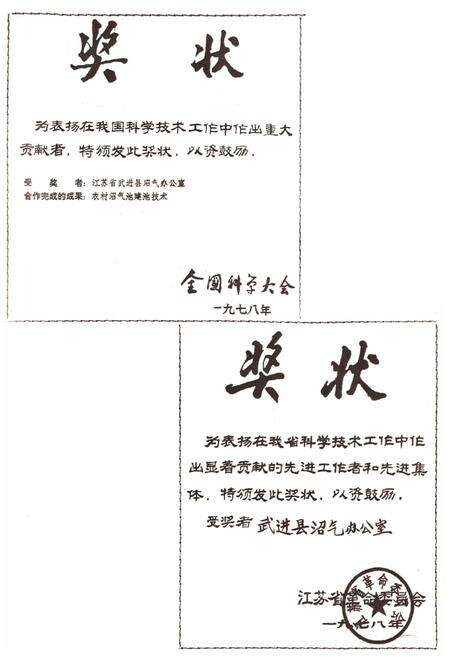 奖状
为表扬在我国科学技术工作中作出重大
贡献者，特颁发此奖状，以资鼓励。
受奖者：江苏省武进县沼气办公室
合作完成的成果：农村沼气池建池技术
全国科学大会
一九七八年
奖状
为表扬在我省科学技术工作中作
出显著贡献的先进工作者和先进集
体，特颁发此奖状，以资鼓励。
受奖者 武进县沼气办公室
江苏省革命委员会
一九七八年